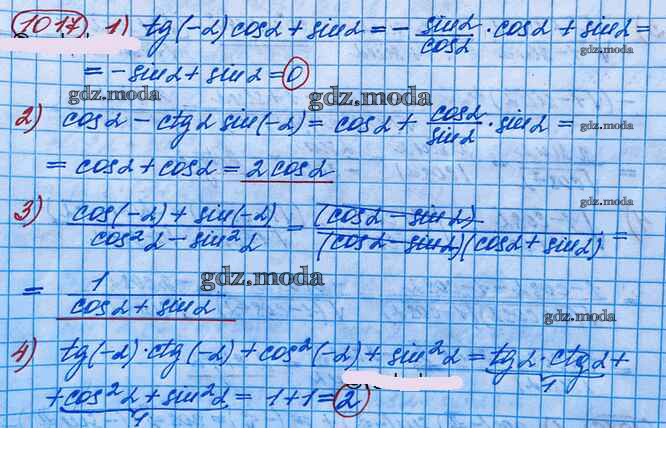 1017) 1) tg(-α) cosα + sinα = - sinα/cosα · cosα + sinα =
gdz.moda
= -sinα + sinα = 0
gdz.moda
gdz.moda
2) cosα - ctgα sin(-α) = cosα + cosα/sinα · sinα =
gdz.moda
= cosα + cosα = 2cosα
gdz.moda
3) cos(-α) + sin(-α)/cos²α - sin²α = (cosα - sinα)/(cosα - sinα)(cosα + sinα) =
gdz.moda
= 1/cosα + sinα
gdz.moda
4) tg(-α)·ctg(-α) + cos²(-α) + sin²α = tgα · ctgα +
1
+ cos²α + sin²α = 1 + 1 = 2
1